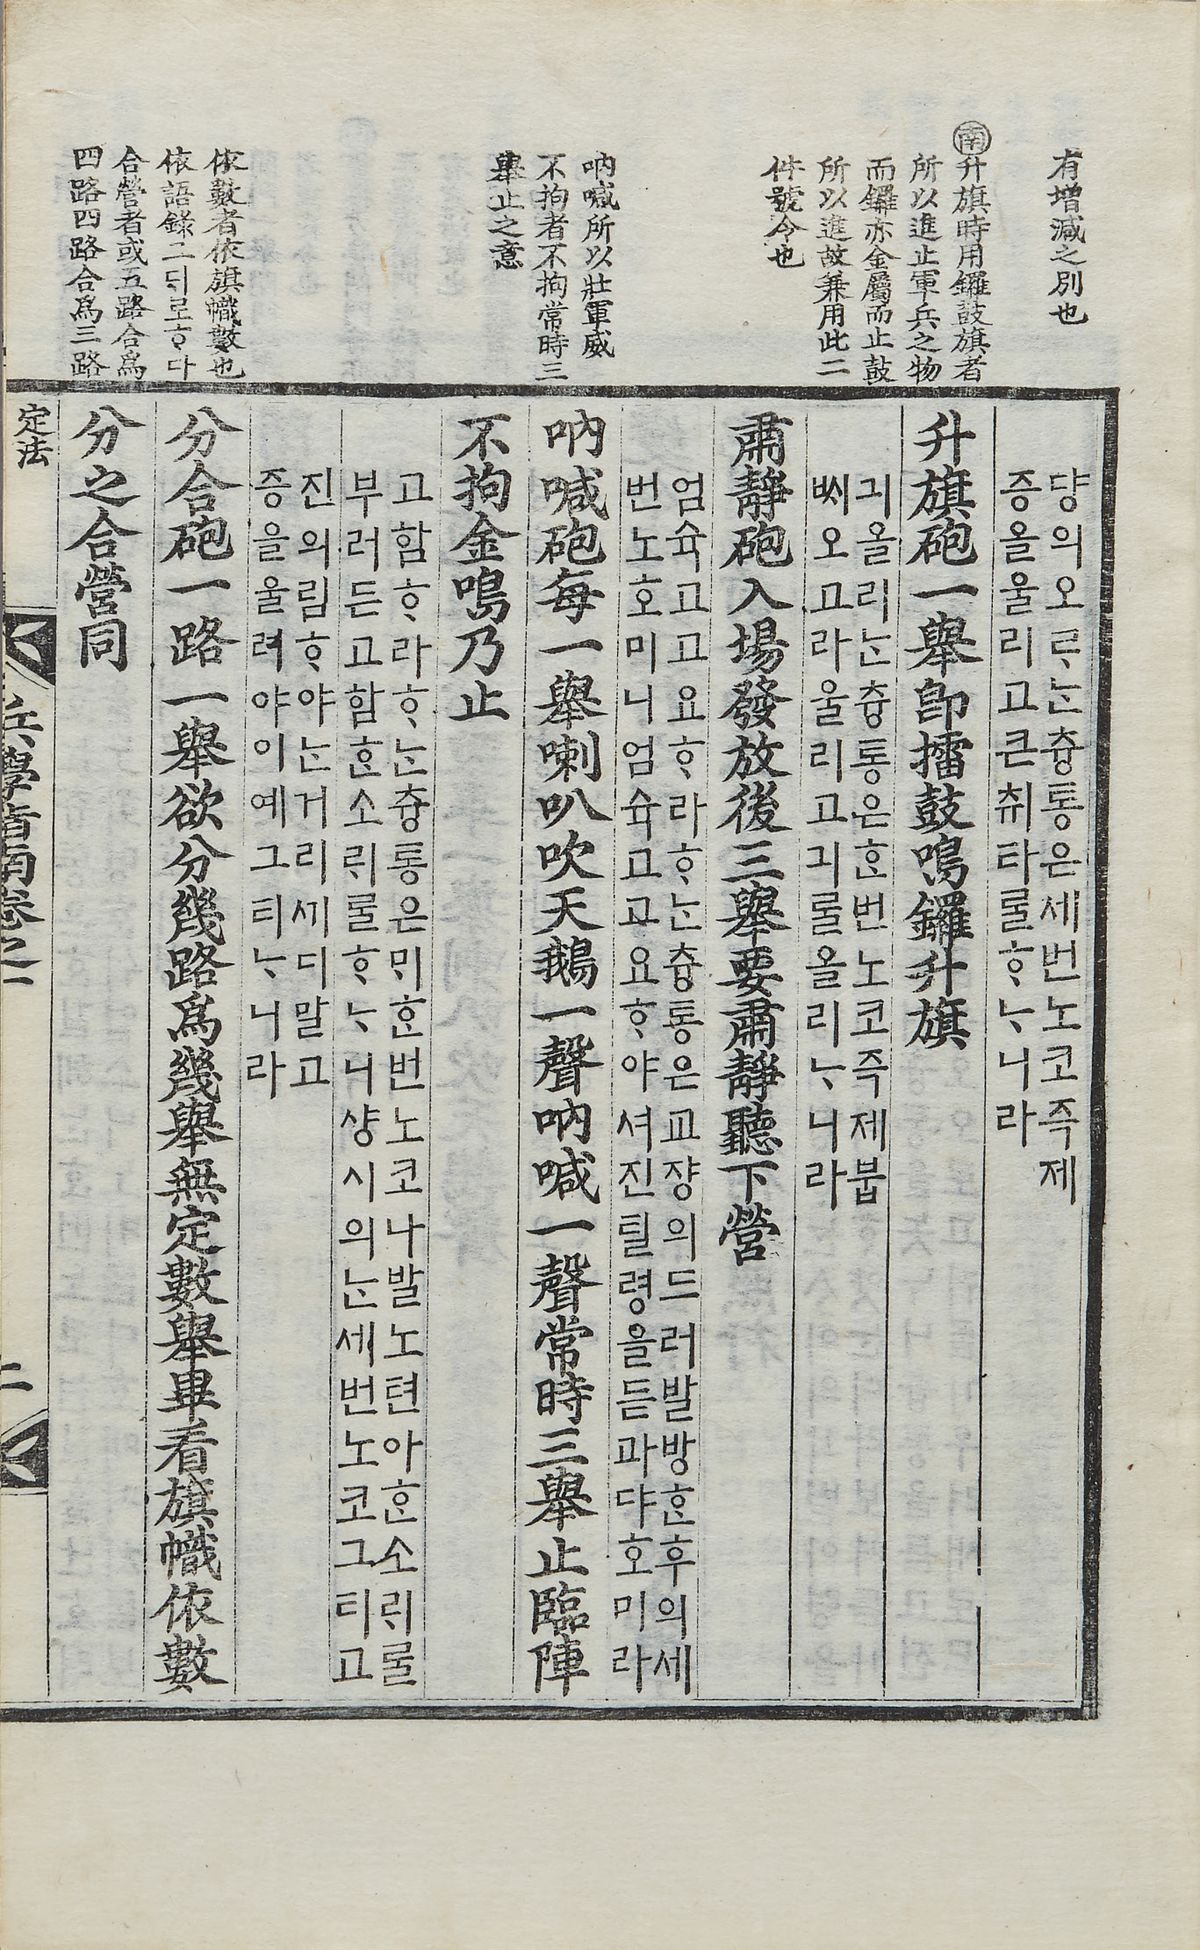 有增減之別也
南升旗時用鑼鼓旗者
所以進止軍兵之物
而鑼亦金屬而止鼓
所以進故兼用此二
件號令也
吶喊所以壯軍威
不拘者不拘常時三
擧止之意
依數者依旗幟數也
依語錄ᄀᆞᆺ디로ᄒᆞ다
合營者或五路合爲
四路四路合爲三路
댱의오ᄅᆞᄂᆞᆫ츙통은세번노코즉제
증을울리고큰취타ᄅᆞᆯᄒᆞᄂᆞ니라
升旗砲一擧卽擂鼓鳴鑼升旗
긔올리ᄂᆞᆫ츙통은ᄒᆞᆫ번노코즉제붑
ᄡᅵ오고라울리고긔ᄅᆞᆯ올리ᄂᆞ니라
肅靜砲入場發放後三擧要肅靜聽下營
엄슉고고요ᄒᆞ라ᄒᆞᄂᆞᆫ츙통은교쟝의드러발방ᄒᆞᆫ후의세
번노호미니엄슉고고요ᄒᆞ야셔진틸령을듣과댜호미라
吶喊砲每一擧喇叭吹天鵝一聲吶喊一聲常時三擧止臨陣
不拘金鳴乃止
고함ᄒᆞ라ᄒᆞᄂᆞᆫ츙통은ᄆᆡᄒᆞᆫ번노코나발노텬아ᄒᆞᆫ소ᄅᆡᄅᆞᆯ
부러든고함ᄒᆞᆫ소ᄅᆡᄅᆞᆯᄒᆞᄂᆞ니샹시의ᄂᆞᆫ세번노코그티고
진의림ᄒᆞ야ᄂᆞᆫ거리세디말고
증을울려야이예그티ᄂᆞ니라
分合砲一路一擧欲分幾路爲幾擧無定數擧畢看旗幟依數
分之合營同
定法
兵學指南卷之一
二